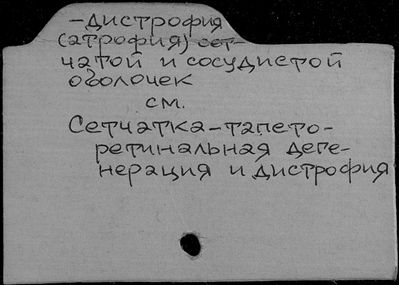 -Дистрофия
(атрофия) сет-
чатой и сосудистой
оболочек
см.
Сетчатка-тапето-
ретинальная деге-
нерация и дистрофия